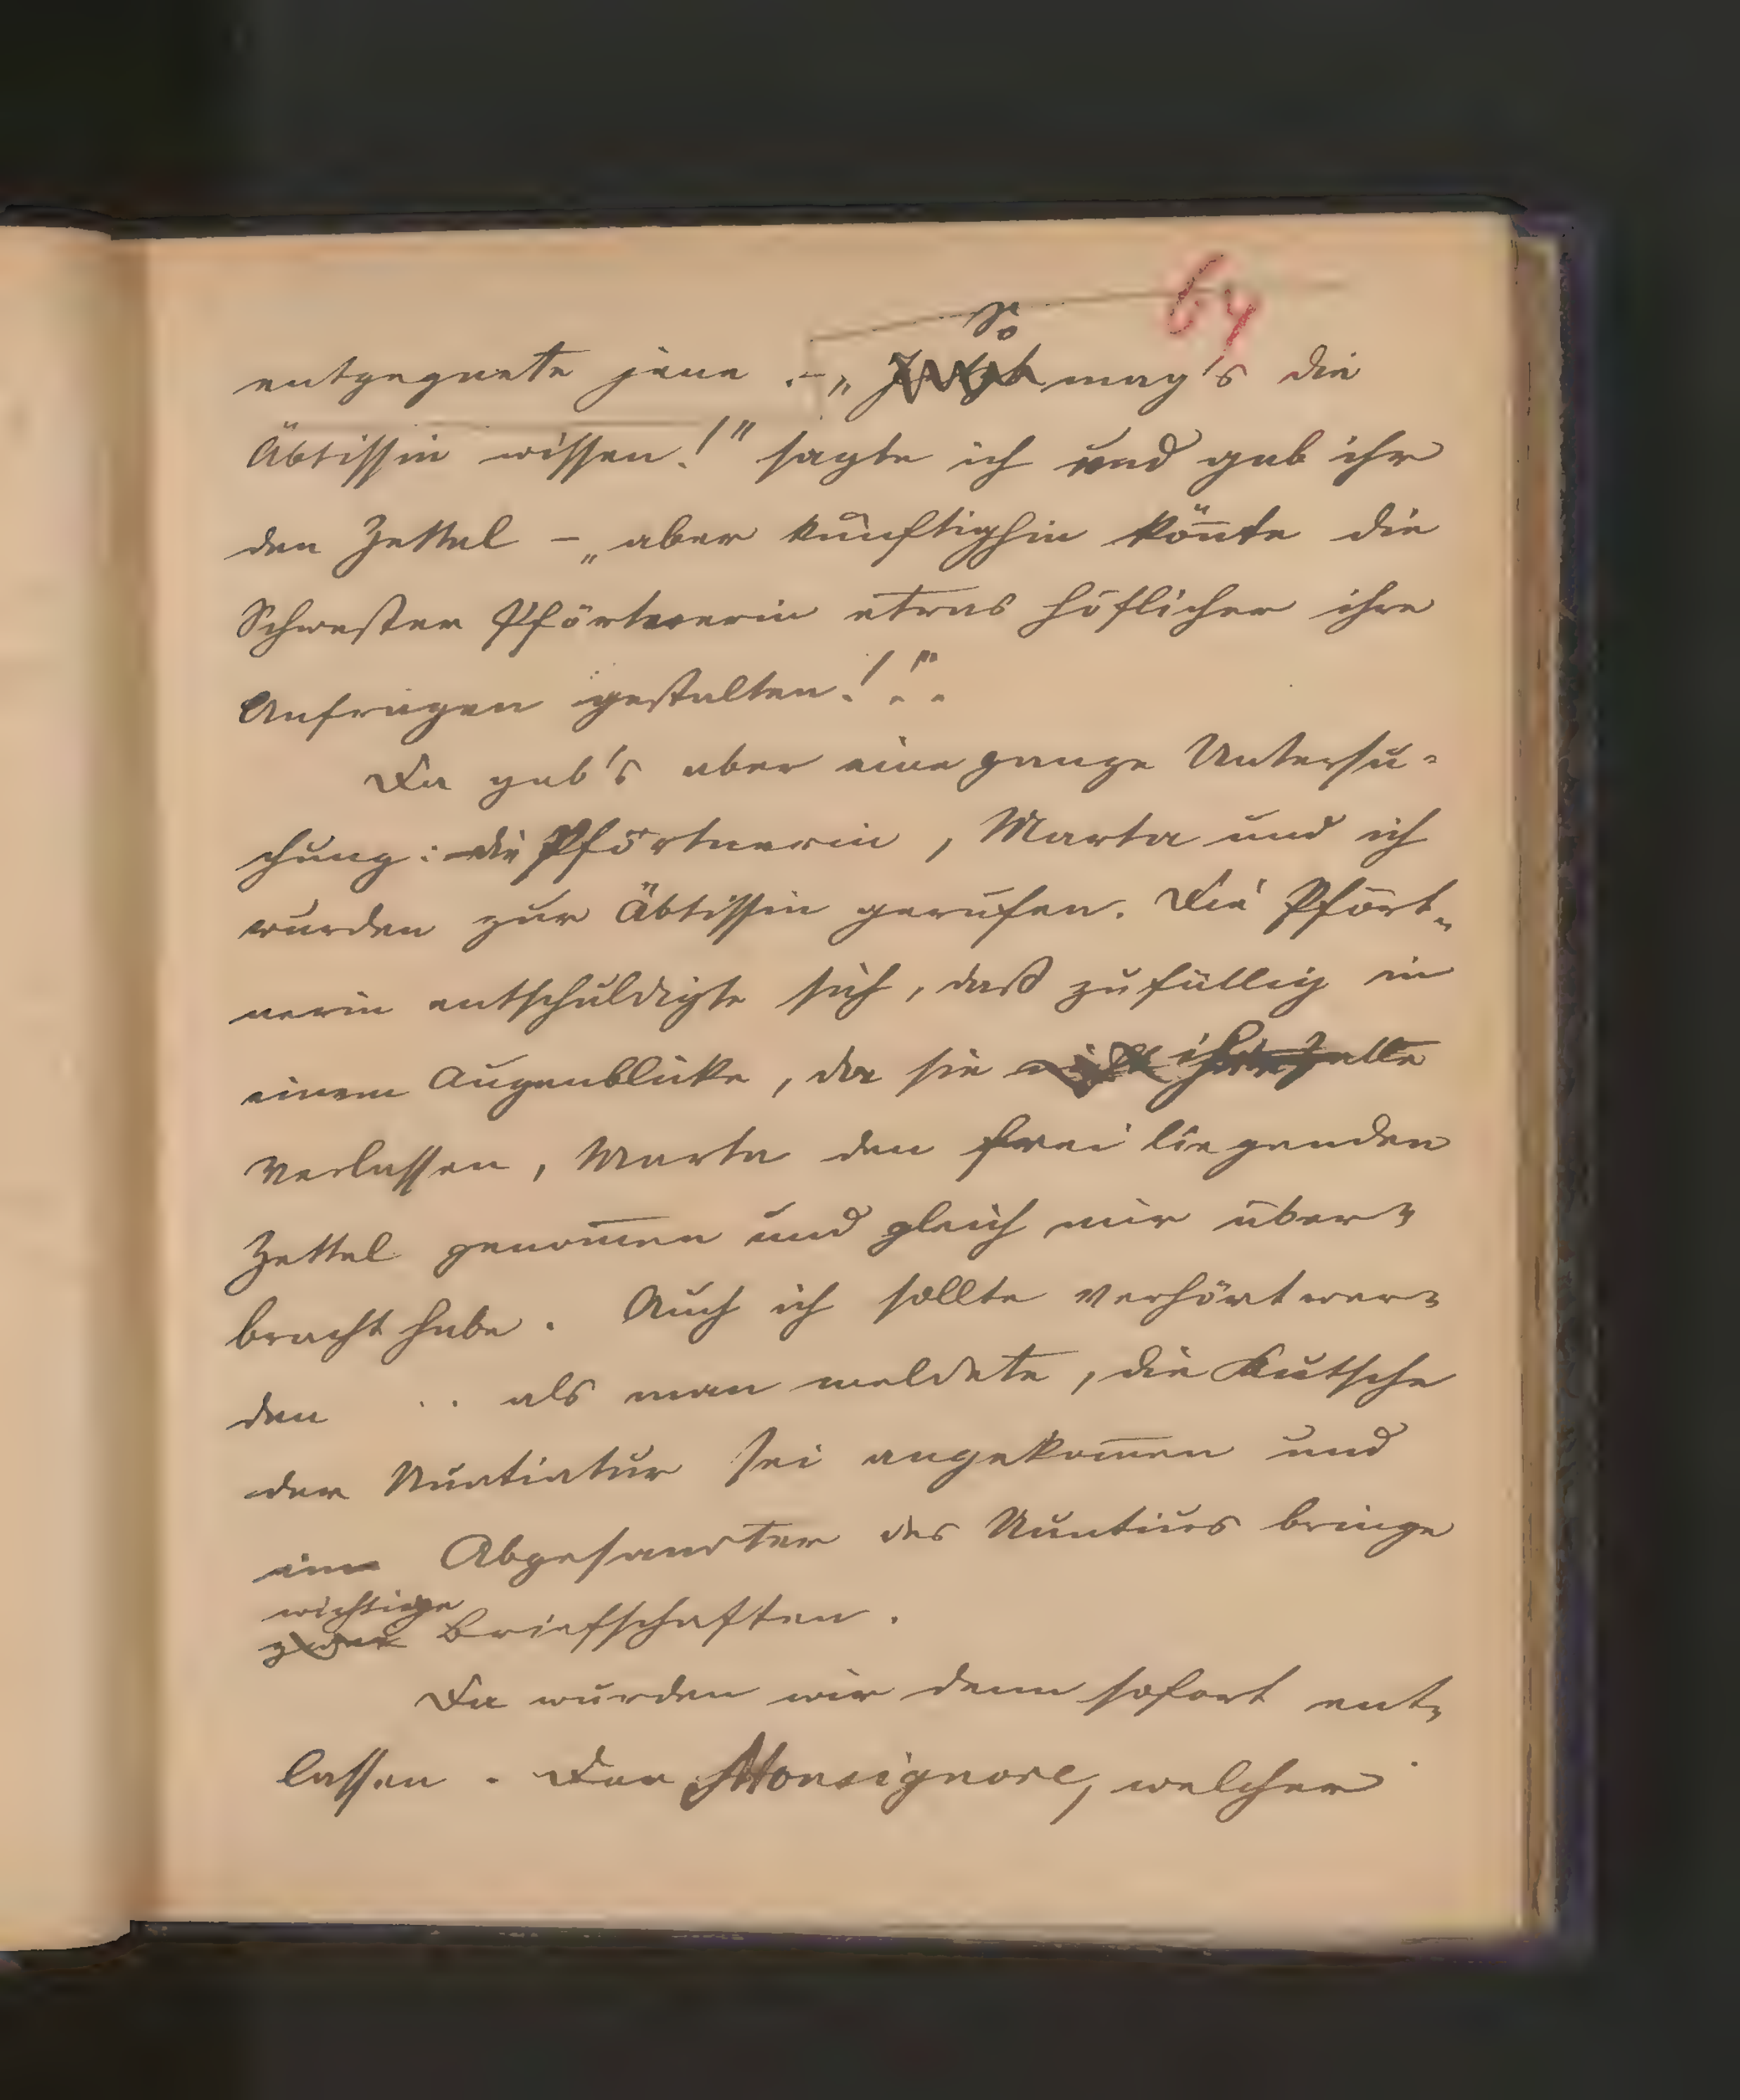 64
So
entgegnete jene .– „ mag's die
Äbtissin wissen!" sagte ich und gab ihr
den Zettel – „aber künftighin kön̄te die
Schwester Pförtnerin etwas höflicher ihre
Anfragen gestalten!"..
Da gab's aber eine ganze Untersu-
chung: die Pförtnerin, Marta und ich
wurden zur Äbtissin gerufen. Die Pfört-
nerin entschuldigte sich, daß zufällig in
einem Augenblicke, da sie ihre Zelle
verlassen, Marta den frei liegenden
Zettel genom̄en und gleich mir über-
bracht habe. Auch ich sollte verhört wer-
den .. als man meldete, die Kutsche
der Nuntiatur sei angekom̄en und
ein Abgesandter des Nuntius bringe
wichtige
Briefschaften.
Da wurden wir denn sofort ent-
lassen. Der Monsignore, welcher